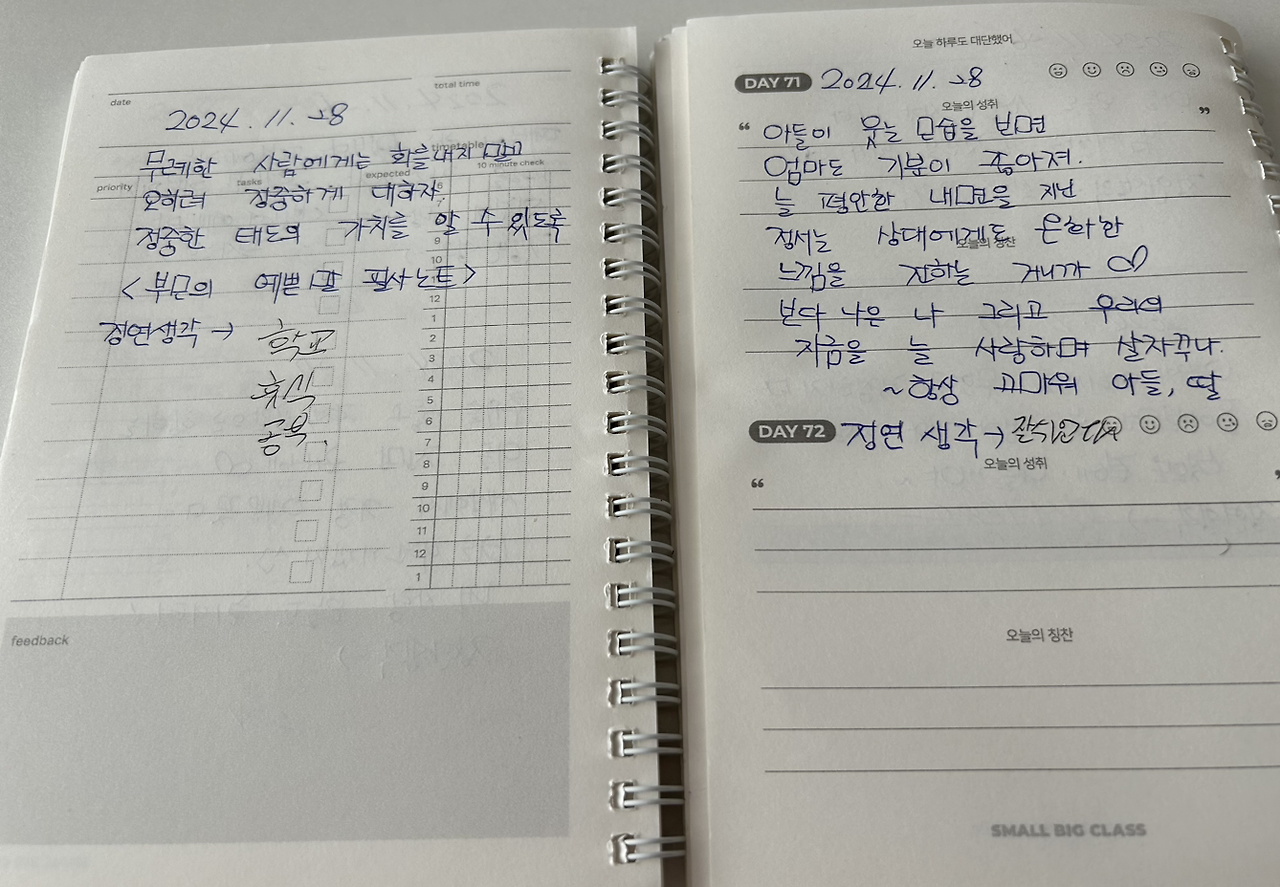 date
total time
2024. 11. 28
무례한 사람에게는 화를 내지 말고
timetable
10 minute check
priority
tasks
expected
오히려 정중하게 대하자.
정중한 태도의 가치를 알 수 있도록
<부모의 예쁜 말 필사노트>
정연생각 → 학교
휴식
공부.
6
9
10
12
1
2
3
4
5
6
7
8
9
10
11
12
1
feedback
오늘 하루도 대단했어
DAY 71 2024. 11. 28
오늘의 성취
“ 아들이 웃는 모습을 보면 ”
엄마도 기분이 좋아져.
늘 평안한 내면을 지닌
정서는 상대에게도 온화한
오늘의 칭찬
느낌을 전하는 거니까 ♡
보다 나은 나 그리고 우리의
지금을 늘 사랑하며 살자꾸나.
~항상 고마워 아들, 딸
DAY 72 정연 생각 →
오늘의 성취
“ ”
오늘의 칭찬
SMALL BIG CLASS